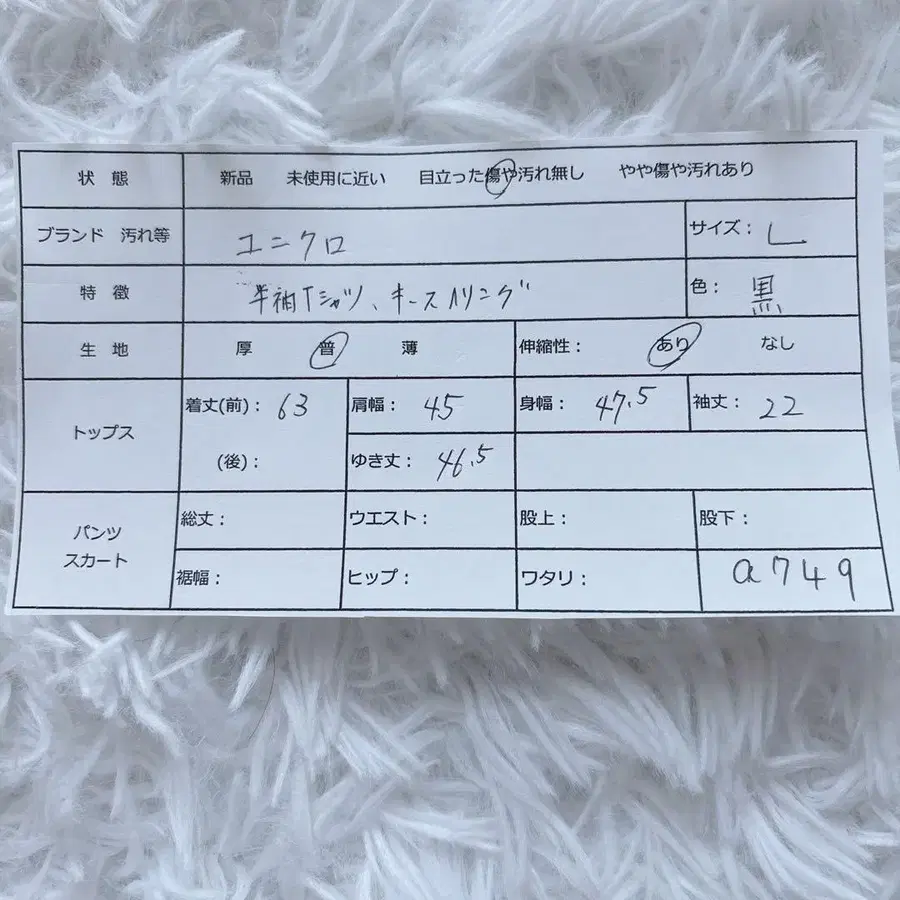 状 態 新品 未使用に近い 目立った傷や汚れ無し やや傷や汚れあり
ブランド 汚れ等 ユニクロ サイズ： L
特 徴 半袖Tシャツ、キースヘリング 色： 黒
生 地 厚 普 薄 伸縮性： あり なし
トップス 着丈(前)： 63 肩幅： 45 身幅： 47.5 袖丈： 22
(後)： ゆき丈： 46.5
パンツ スカート 総丈： ウエスト： 股上： 股下：
裾幅： ヒップ： ワタリ： a749